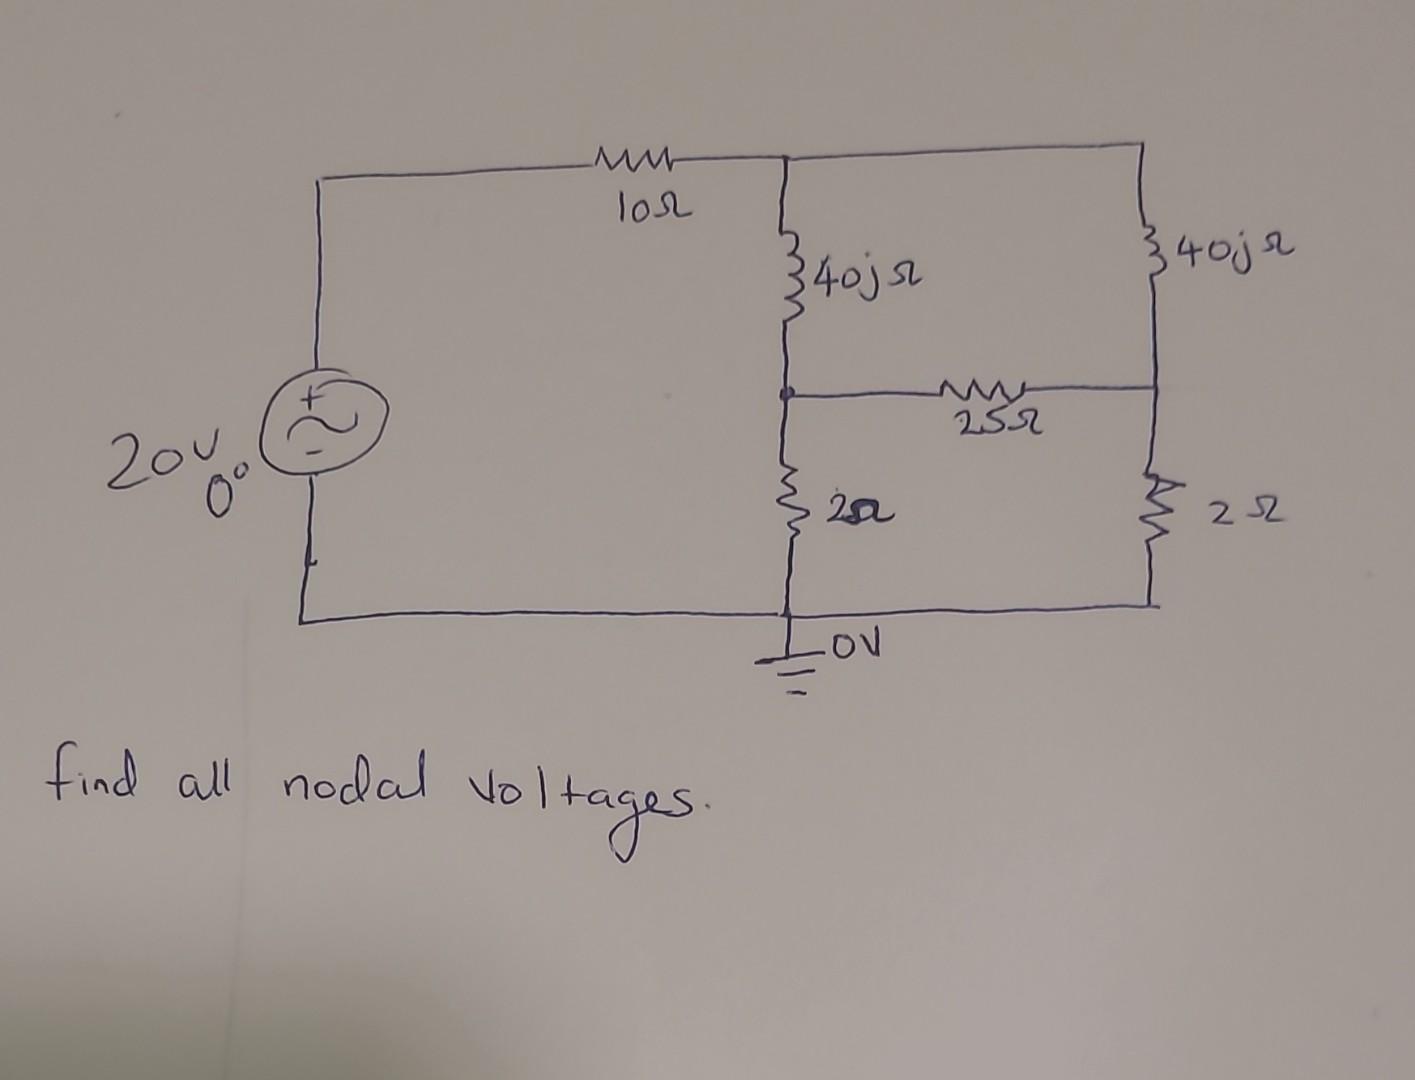 10Ω
40jΩ
40jΩ
+
25Ω
20V
0°
-
2Ω
2Ω
0V
find all nodal voltages.